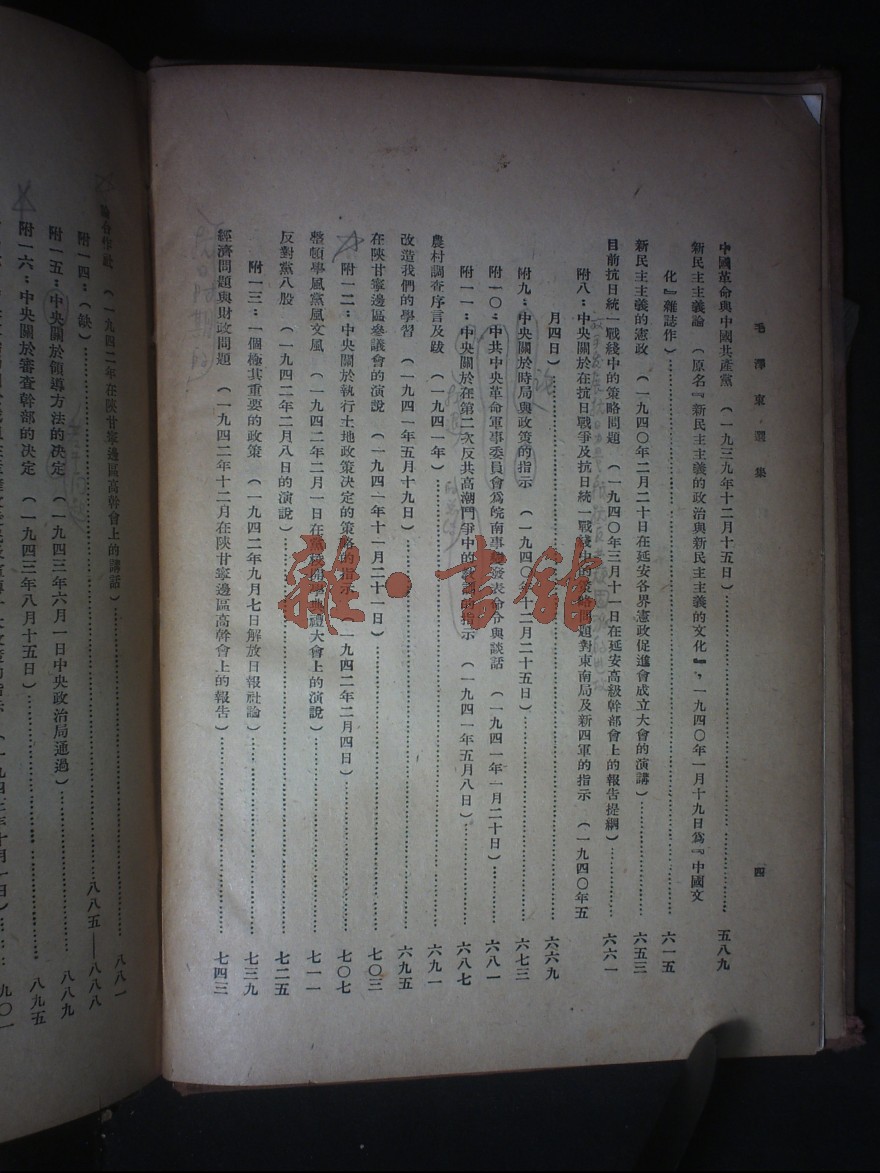 毛澤東選集
四
中國革命與中國共產黨 （一九三九年十二月十五日）……五八九
新民主主義論 （原名『新民主主義的政治與新民主主義的文化』，一九四〇年一月十九日爲『中國文
化』雜誌作）……六一五
新民主主義的憲政 （一九四〇年二月二十日在延安各界憲政促進會成立大會的演講）……六五三
目前抗日統一戰綫中的策略問題 （一九四〇年三月十一日在延安高級幹部會上的報告提綱）……六六一
附八：中央關於在抗日戰爭及抗日統一戰綫中的策略問題對東南局及新四軍的指示 （一九四〇年五
月四日）……六六九
附九：中央關於時局與政策的指示 （一九四〇年十二月二十五日）……六七三
附一〇：中共中央革命軍事委員會爲皖南事變發表命令與談話 （一九四一年一月二十日）……六八一
附一一：中央關於在第二次反共高潮鬥爭中的教訓的指示 （一九四一年五月八日）……六八七
農村調查序言及跋 （一九四一年）……六九一
改造我們的學習 （一九四一年五月十九日）……六九五
在陝甘寧邊區參議會的演說 （一九四一年十一月二十一日）……七〇三
附一二：中央關於執行土地政策決定的策略的指示 （一九四二年二月四日）……七〇七
整頓學風黨風文風 （一九四二年二月一日在黨校開學典禮大會上的演說）……七一一
反對黨八股 （一九四二年二月八日的演說）……七二五
附一三：一個極其重要的政策 （一九四二年九月七日解放日報社論）……七三九
經濟問題與財政問題 （一九四二年十二月在陝甘寧邊區高幹會上的報告）……七四三
論合作社 （一九四二年在陝甘寧邊區高幹會上的講話）……八八一
附一四：（缺）……八八五——八八八
附一五：中央關於領導方法的决定 （一九四三年六月一日中央政治局通過）……八八九
附一六：中央關於審查幹部的决定 （一九四三年八月十五日）……八九五
的指示 （一九四三年十月一日）……九〇一
雜·書館